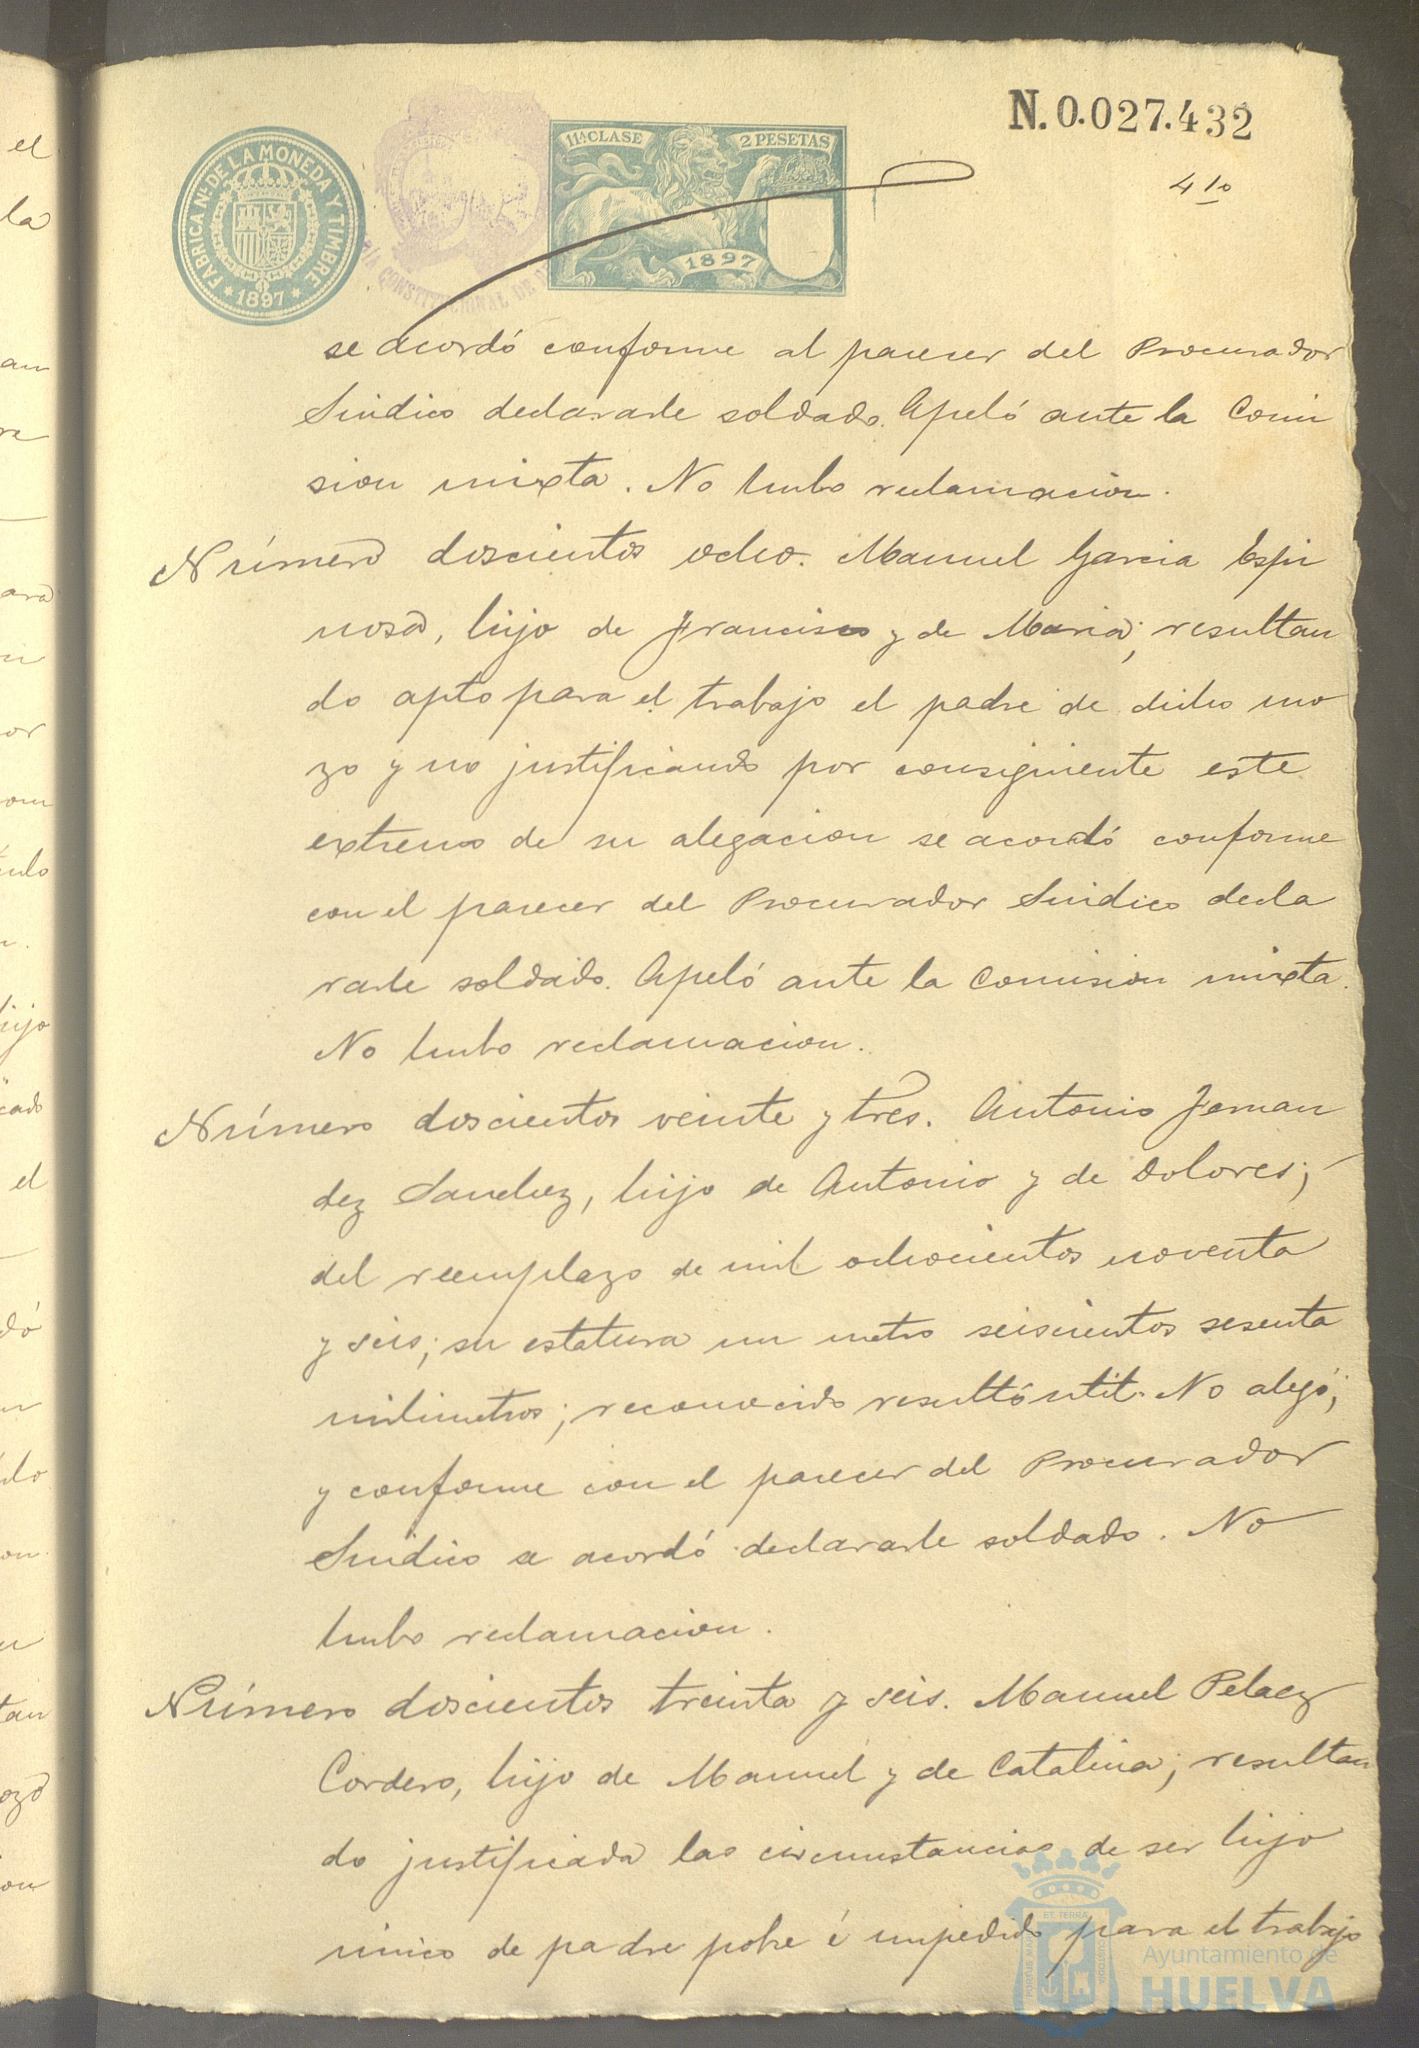 N. 0.027.432
11ª CLASE 2 PESETAS
FÁBRICA NL. DE LA MONEDA Y TIMBRE
1897
1897
CONSTITUCIONAL DE
4
se acordó conforme al parecer del Procurador
Sindico declararle soldado. Apeló ante la Comi
sion mixta. No hubo reclamacion.
Número doscientos ocho. Manuel Garcia Espi
nosa, hijo de Francisco y de Maria; resultan
do apto para el trabajo el padre de dicho mo
zo y no justificando por consiguiente este
extremo de su alegacion se acordó conforme
con el parecer del Procurador Sindico decla
rarle soldado. Apeló ante la Comision mixta.
No hubo reclamacion.
Número doscientos veinte y tres. Antonio Fernan
dez Sanchez, hijo de Antonio y de Dolores;
del reemplazo de mil ochocientos noventa
y seis; su estatura un metro seiscientos sesenta
milimetros; reconocido resultó util. No alegó;
y conforme con el parecer del Procurador
Sindico se acordó declararle soldado. No
hubo reclamacion.
Número doscientos treinta y seis. Manuel Pelaez
Cordero, hijo de Manuel y de Catalina; resultan
do justificada las circunstancias de ser hijo
único de padre pobre é impedido para el trabajo
Ayuntamiento de
HUELVA